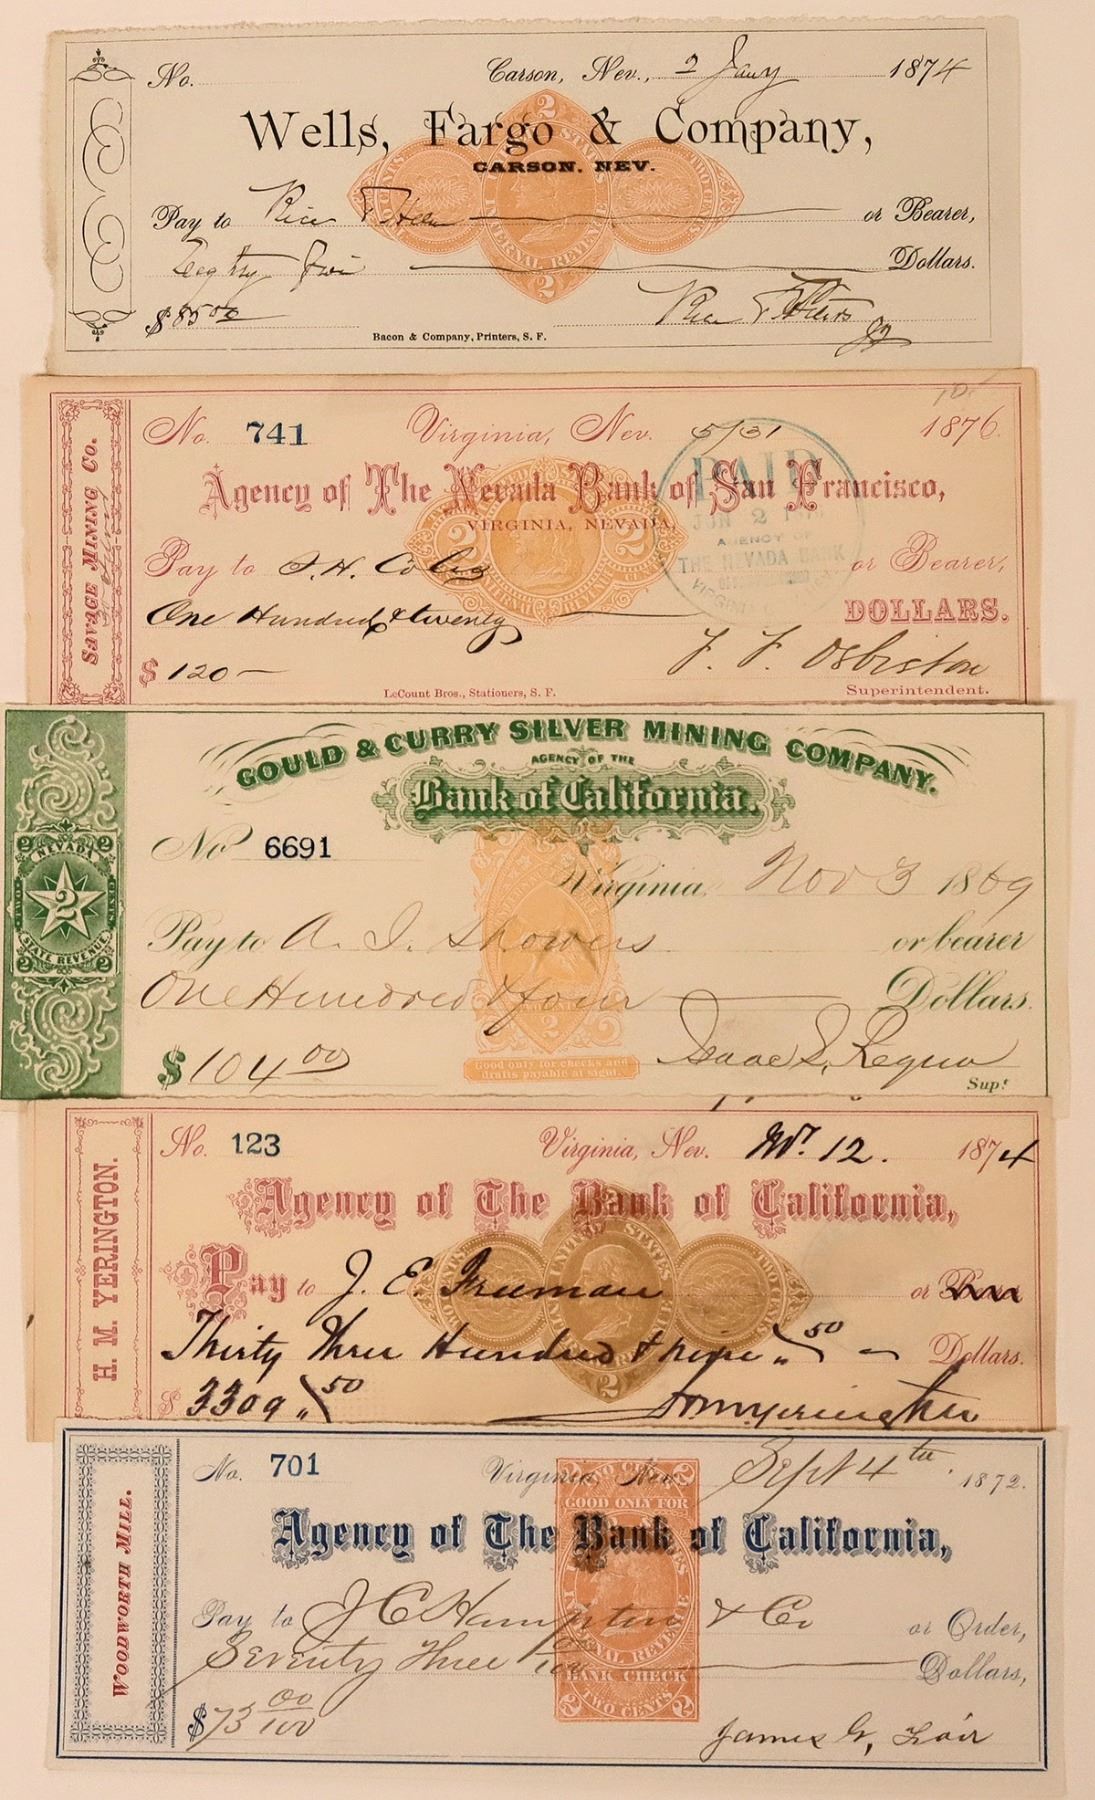 No. Carson, Nev., 2 Jany 1874
Wells, Fargo & Company,
CARSON, NEV.
Pay to or Bearer,
Eighty Five Dollars.
$ 85 00
Bacon & Company, Printers, S. F.
2 UNITED STATES TWO CENTS
INTERNAL REVENUE
2
SAVAGE MINING CO.
No. 741 Virginia, Nev. 5/31 1876
Agency of The Nevada Bank of San Francisco,
VIRGINIA, NEVADA,
PAID
JUN 2
AGENCY OF
THE NEVADA BANK
Pay to or Bearer,
One Hundred & twenty DOLLARS.
$ 120 —
F. F. Osbiston
LeCount Bros., Stationers, S. F. Superintendent.
GOULD & CURRY SILVER MINING COMPANY.
AGENCY OF THE
Bank of California.
2 NEVADA 2
2
STATE REVENUE
2 2
No 6691
Virginia, Nov 3 1869
Pay to A. I. Showers or bearer
One Hundred & four Dollars.
$ 104 00 Isaac L. Requa
Supt
Good only for checks and
drafts payable at sight.
H. M. YERINGTON.
No. 123 Virginia, Nev. 12. 1874
Agency of The Bank of California,
Pay to J. E. Freeman or
Thirty Three Hundred & nine 50 Dollars.
$ 3309 50
2
WOODWORTH MILL.
No. 701 Virginia, Nev. Sept 4th 1872.
Agency of The Bank of California,
GOOD ONLY FOR
INTERNAL REVENUE
BANK CHECK
2 TWO CENTS 2
Pay to J C Hampton & Co or Order,
Seventy Three Dollars,
$73 00/100
James G. Fair